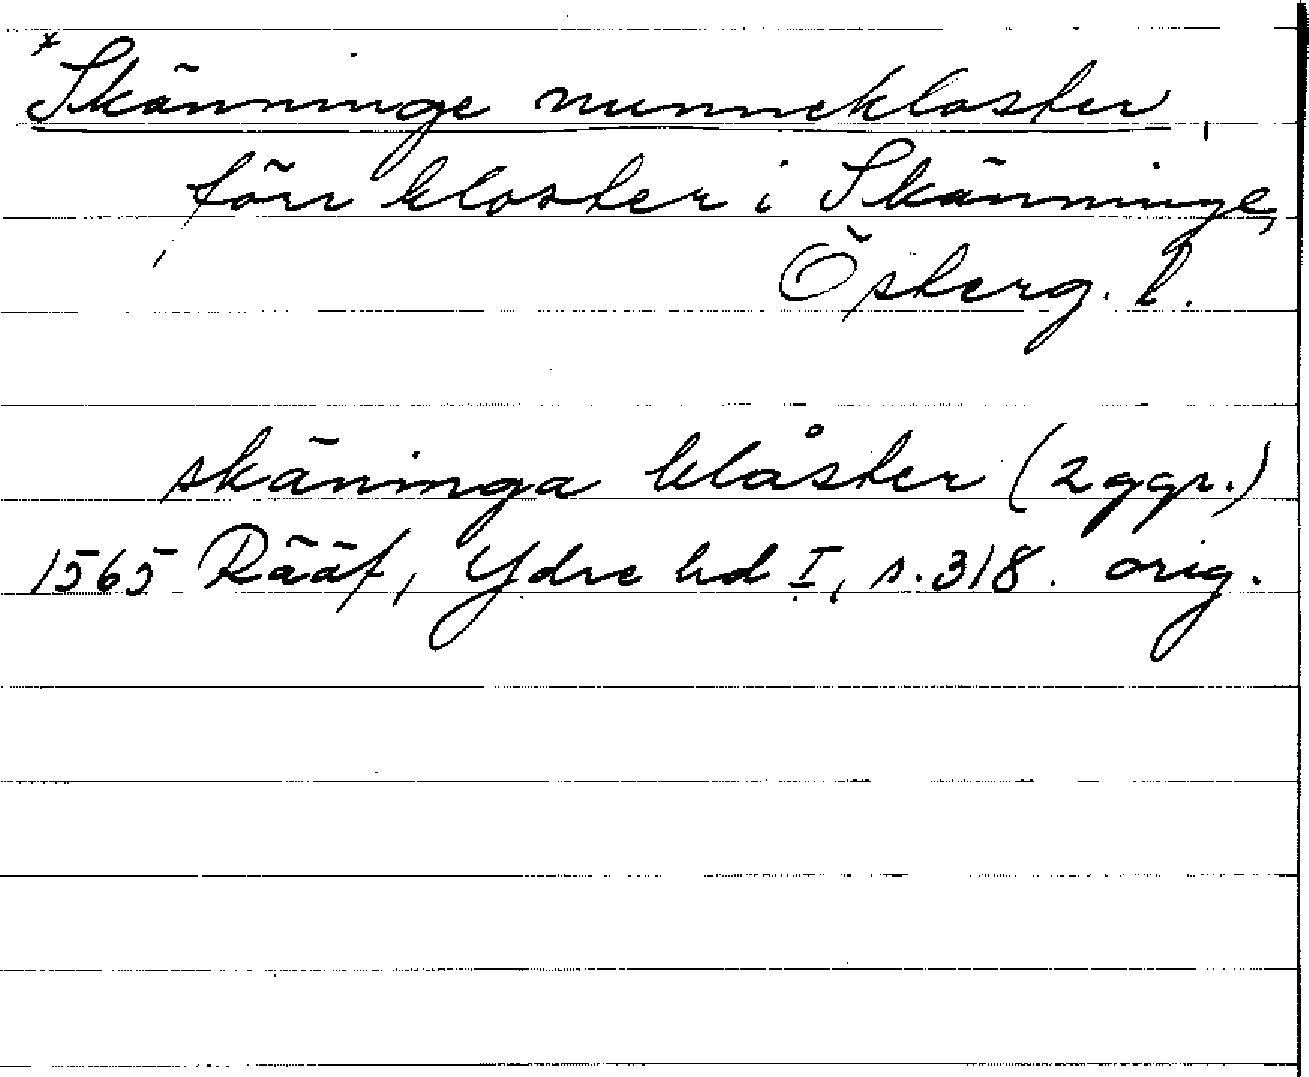 *Skänninge nunnekloster,
förr kloster i Skänninge,
Österg. l.
skäninga klåster (2 ggr.)
1565 Rääf, Ydre hd I, s. 318. orig.